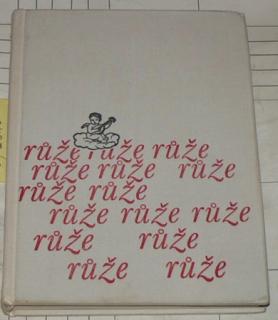 růže růže růže
růže růže růže
růže růže
růže růže růže
růže růže
růže růže